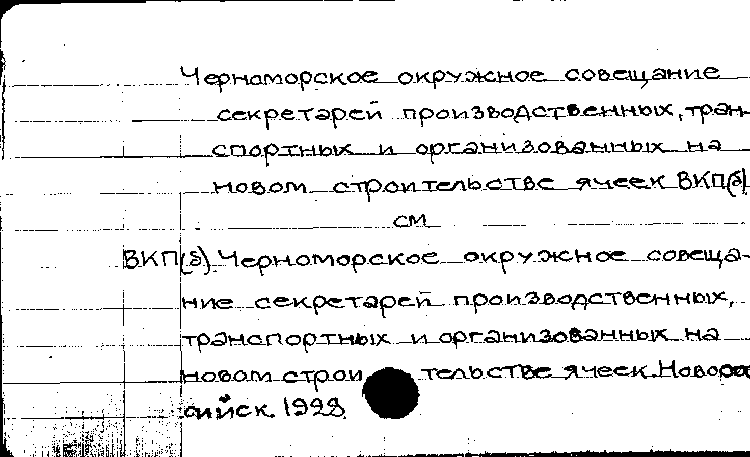 Черноморское окружное совещание
секретарей производственных, тран-
спортных и организованных на
новом строительстве ячеек ВКП(б)
см
ВКП(б). Черноморское окружное совеща-
ние секретарей производственных,
транспортных и организованных на
новом строительстве ячеек. Новорос
сийск. 1928